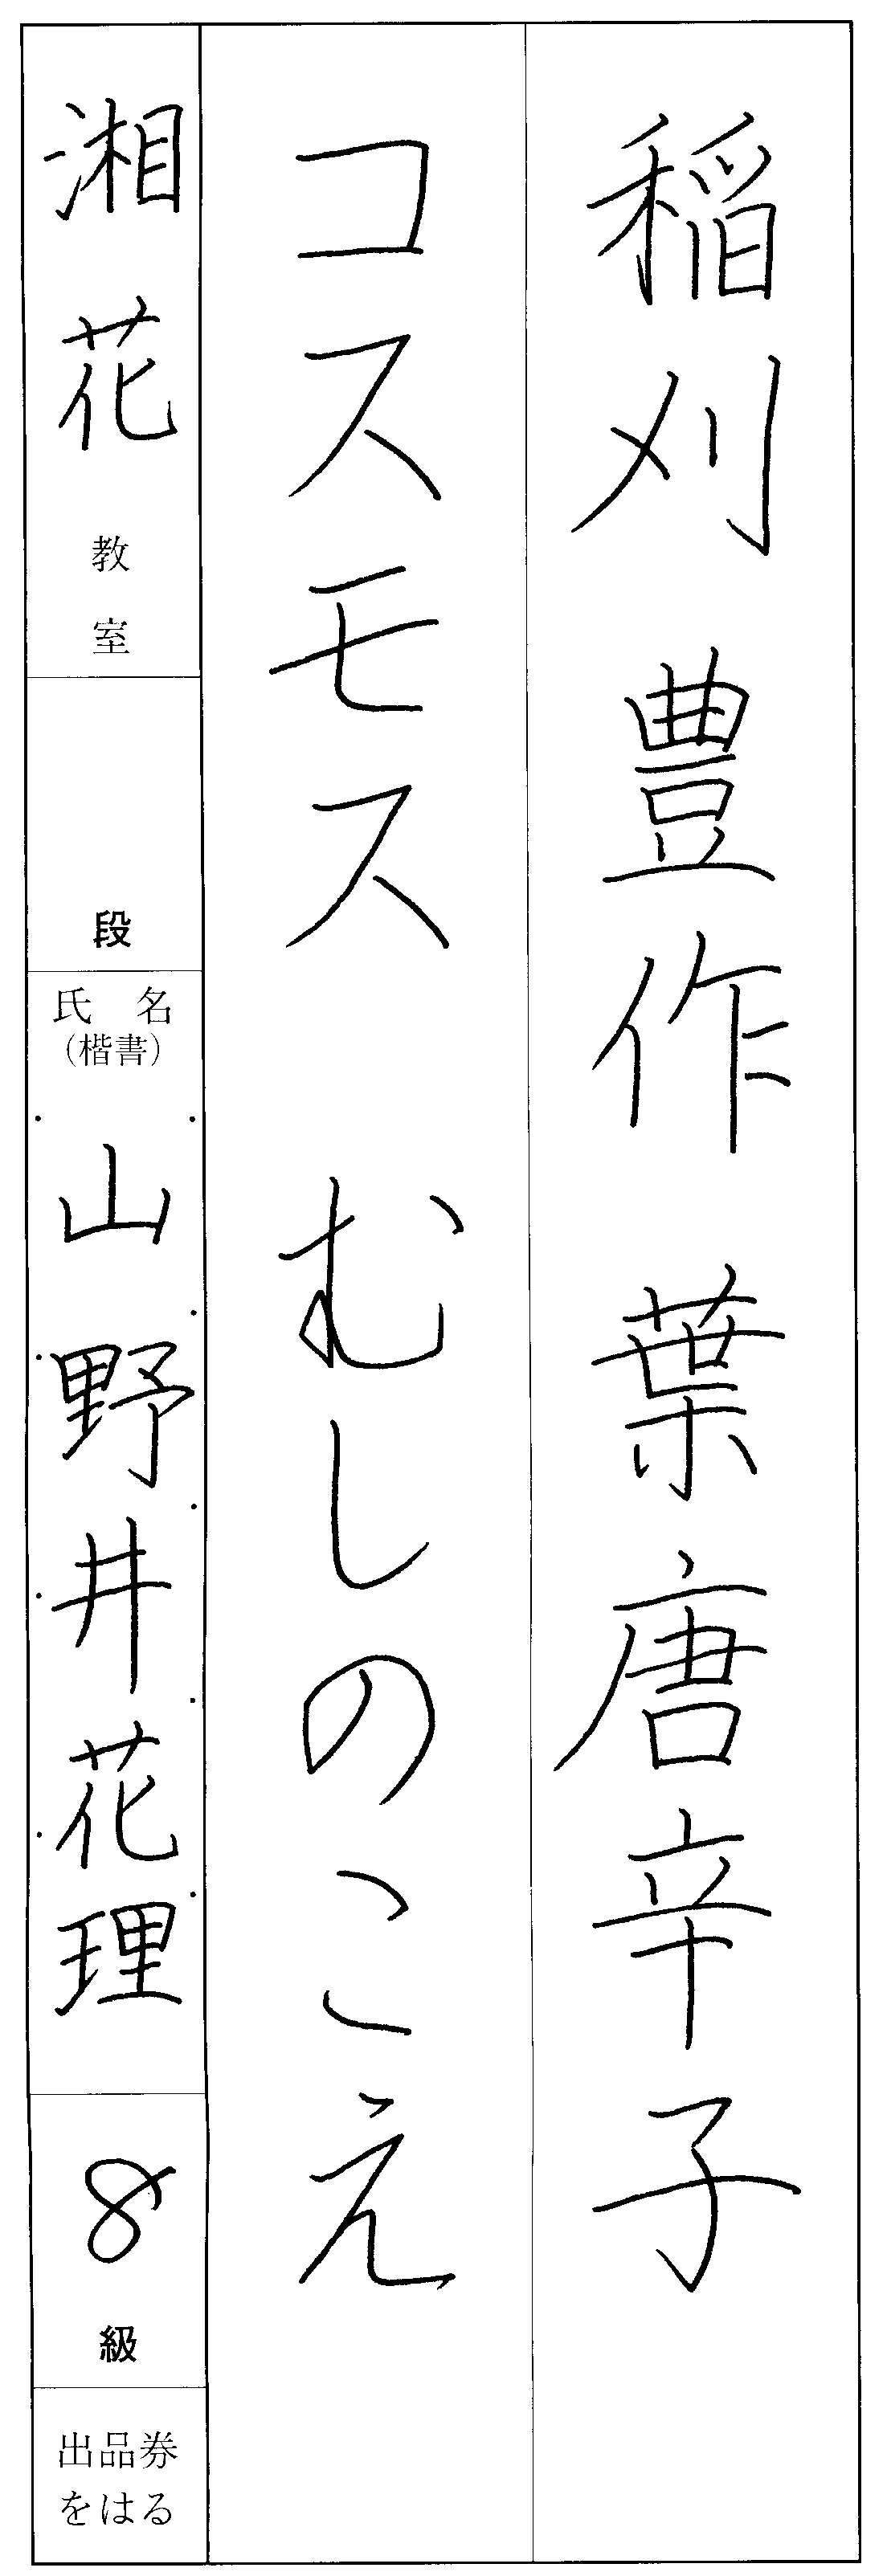 稲刈 豊作 葉唐辛子
コスモス むしのこえ
湘花教室
段
氏名
(楷書)
山野井花理
8級
出品券
をはる